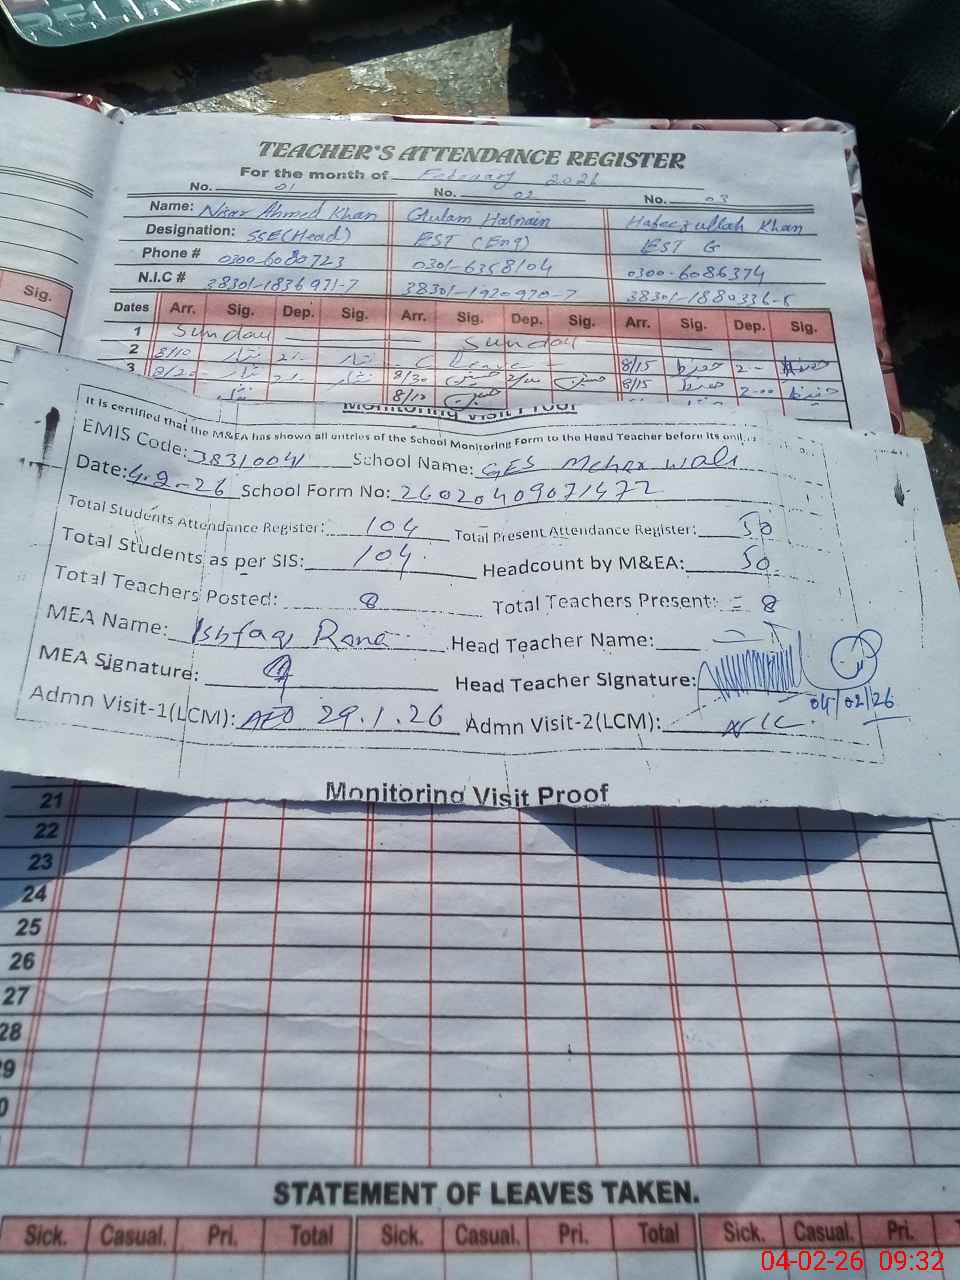 TEACHER'S ATTENDANCE REGISTER
For the month of February 2026
No. 01 No. 02 No. 03
Name: Nisar Ahmed Khan Ghulam Hasnain Hafeezullah Khan
Designation: SSE(Head) EST (Eng) EST G
Phone # 0300-6080723 0301-6358104 0300-6086374
N.I.C # 38301-1836971-7 38301-1920970-7
Sig.
Dates Arr. Sig. Dep. Sig. Arr. Sig. Dep. Sig. Arr. Sig. Dep. Sig.
1 Sunday Sunday
2 8/10 نثار نثار C leave 8/15 حفیظ
3 8/20 نثار نثار 8/30 حسنین حسنین 8/15 حفیظ 2-00 حفیظ
8/10 حسنین
Monitoring Visit Proof
It is certified that the M&EA has shown all entries of the School Monitoring Form to the Head Teacher before its
EMIS Code: 38310041 School Name: GES Meher wali
Date: 4-2-26 School Form No: 26020409071472
Total Students Attendance Register: 104 Total Present Attendance Register: 50
Total Students as per SIS: 104 Headcount by M&EA: 50
Total Teachers Posted: 8 Total Teachers Present: = 8
MEA Name: Ishfaq Rana Head Teacher Name:
MEA Signature: Head Teacher Signature:
04/02/26
Admn Visit-1(LCM): AEO 29.1.26 Admn Visit-2(LCM): NIL
Monitoring Visit Proof
21
22
23
24
25
26
27
28
9
0
STATEMENT OF LEAVES TAKEN.
Sick. Casual. Pri. Total Sick. Casual. Pri. Total Sick. Casual. Pri.
04-02-26 09:32